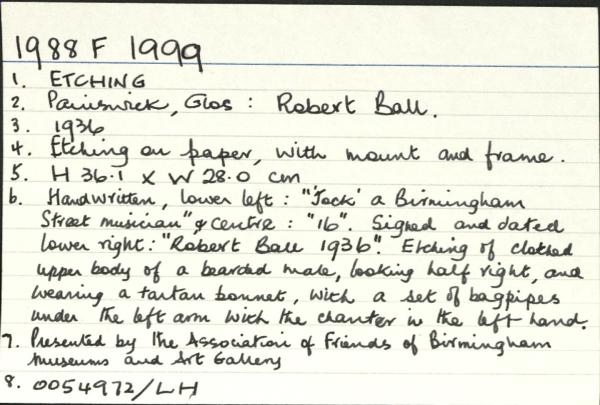 1988 F 1999
1. ETCHING
2. Painswick, Glos : Robert Ball.
3. 1936
4. Etching on paper, with mount and frame.
5. H 36.1 x W 28.0 cm
6. Handwritten, lower left : "'Jock' a Birmingham
Street musician" & centre : "16". Signed and dated
lower right : "Robert Ball 1936". Etching of clothed
upper body of a bearded male, looking half right, and
wearing a tartan bonnet, with a set of bagpipes
under the left arm with the chanter in the left hand.
7. Presented by the Association of Friends of Birmingham
Museums and Art Gallery
8. 0054972/LH